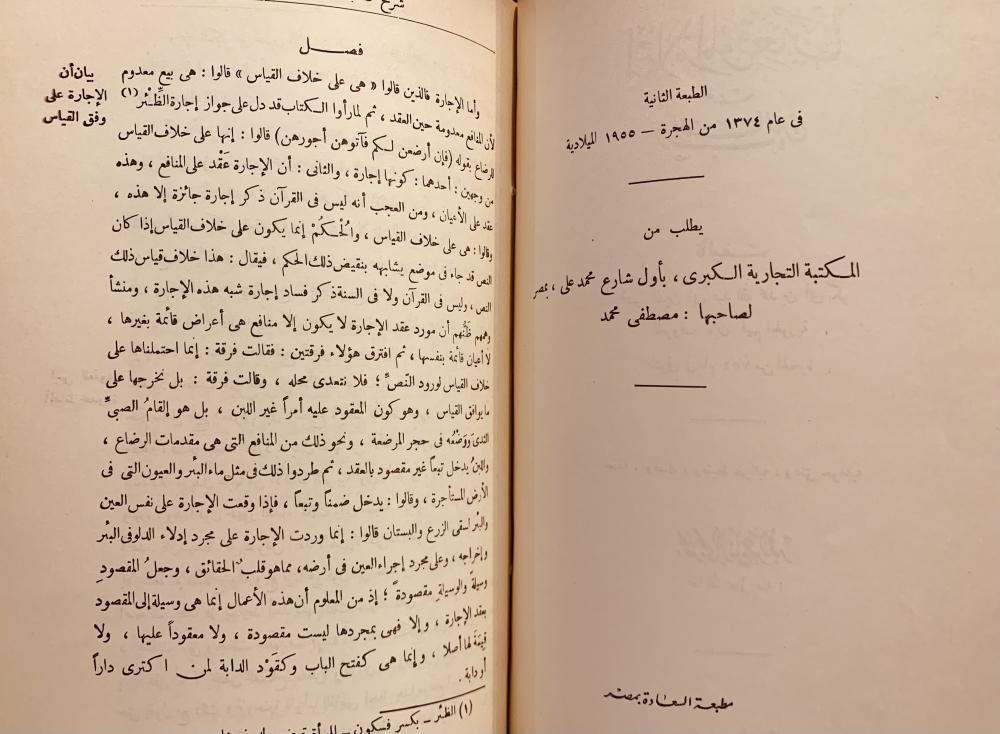 الطبعة الثانية
فى عام ١٣٧٤ من الهجرة — ١٩٥٥ الميلادية
يطلب من
المكتبة التجارية الكبرى ، بأول شارع محمد على ، بمصر
لصاحبها : مصطفى محمد
مطبعة السعادة بمصر
شرح
فصل
بيان أن
الإجارة على
وفق القياس
وأما الإجارة فالذين قالوا « هى على خلاف القياس » قالوا : هى بيع معدوم
لأن المنافع معدومة حين العقد ، ثم لما رأوا الكتاب قد دل على جواز إجارة الظِّئْر (١)
للرضاع بقوله (فإن أرضعن لكم فآتوهن أجورهن) قالوا : إنها على خلاف القياس
من وجهين : أحدهما : كونها إجارة ، والثانى : أن الإجارة عَقْد على المنافع ، وهذه
عقد على الأعيان ، ومن العجب أنه ليس فى القرآن ذكر إجارة جائزة إلا هذه ،
وقالوا : هى على خلاف القياس ، والْحُكمُ إنما يكون على خلاف القياس إذا كان
النص قد جاء فى موضع يشابهه بنقيض ذلك الحكم ، فيقال : هذا خلاف قياس ذلك
النص ، وليس فى القرآن ولا فى السنة ذكر فساد إجارة شبه هذه الإجارة ، ومنشأ
وهمهم ظَنُّهم أن مورد عقد الإجارة لا يكون إلا منافع هى أعراض قائمة بغيرها ،
لا أعيان قائمة بنفسها ، ثم افترق هؤلاء فرقتين : فقالت فرقة : إنما احتملناها على
خلاف القياس لورود النّصِّ ؛ فلا نتعدى محله ، وقالت فرقة : بل نخرجها على
ما يوافق القياس ، وهو كون المعقود عليه أمراً غير اللبن ، بل هو إلقامُ الصبىِّ
الثدىَ وَوَضْعُه فى حجر المرضعة ، ونحو ذلك من المنافع التى هى مقدمات الرضاع ،
واللبنُ يدخل تبعاً غير مقصود بالعقد ، ثم طردوا ذلك فى مثل ماء البئر والعيون التى فى
الأرض المستأجرة ، وقالوا : يدخل ضمناً وتبعاً ، فإذا وقعت الإجارة على نفس العين
والبئر لسقى الزرع والبستان قالوا : إنما وردت الإجارة على مجرد إدلاء الدلو فى البئر
وإخراجه ، وعلى مجرد إجراء العين فى أرضه ، مما هو قلب الحقائق ، وجعلُ المقصودِ
وسيلة والوسيلةِ مقصودةً ؛ إذ من المعلوم أن هذه الأعمال إنما هى وسيلة إلى المقصود
بعقد الإجارة ، وإلا فهى بمجردها ليست مقصودة ، ولا معقوداً عليها ، ولا
قِيمَةَ لها أصلا ، وإنما هى كفتح الباب وكقَوْد الدابة لمن اكترى داراً
أو دابة .
(١) الظئر — بكسر فسكون —